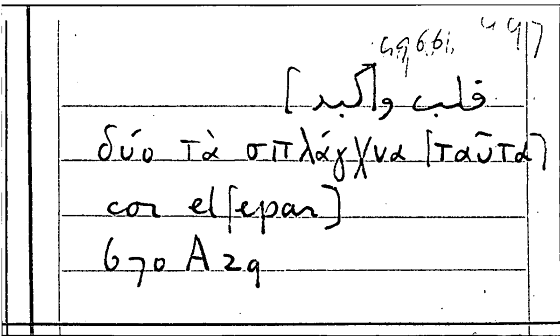 قلب و[كبد]
δύο τὰ σπλάγχνα [ταῦτα]
cor et [epar]
670 A 29